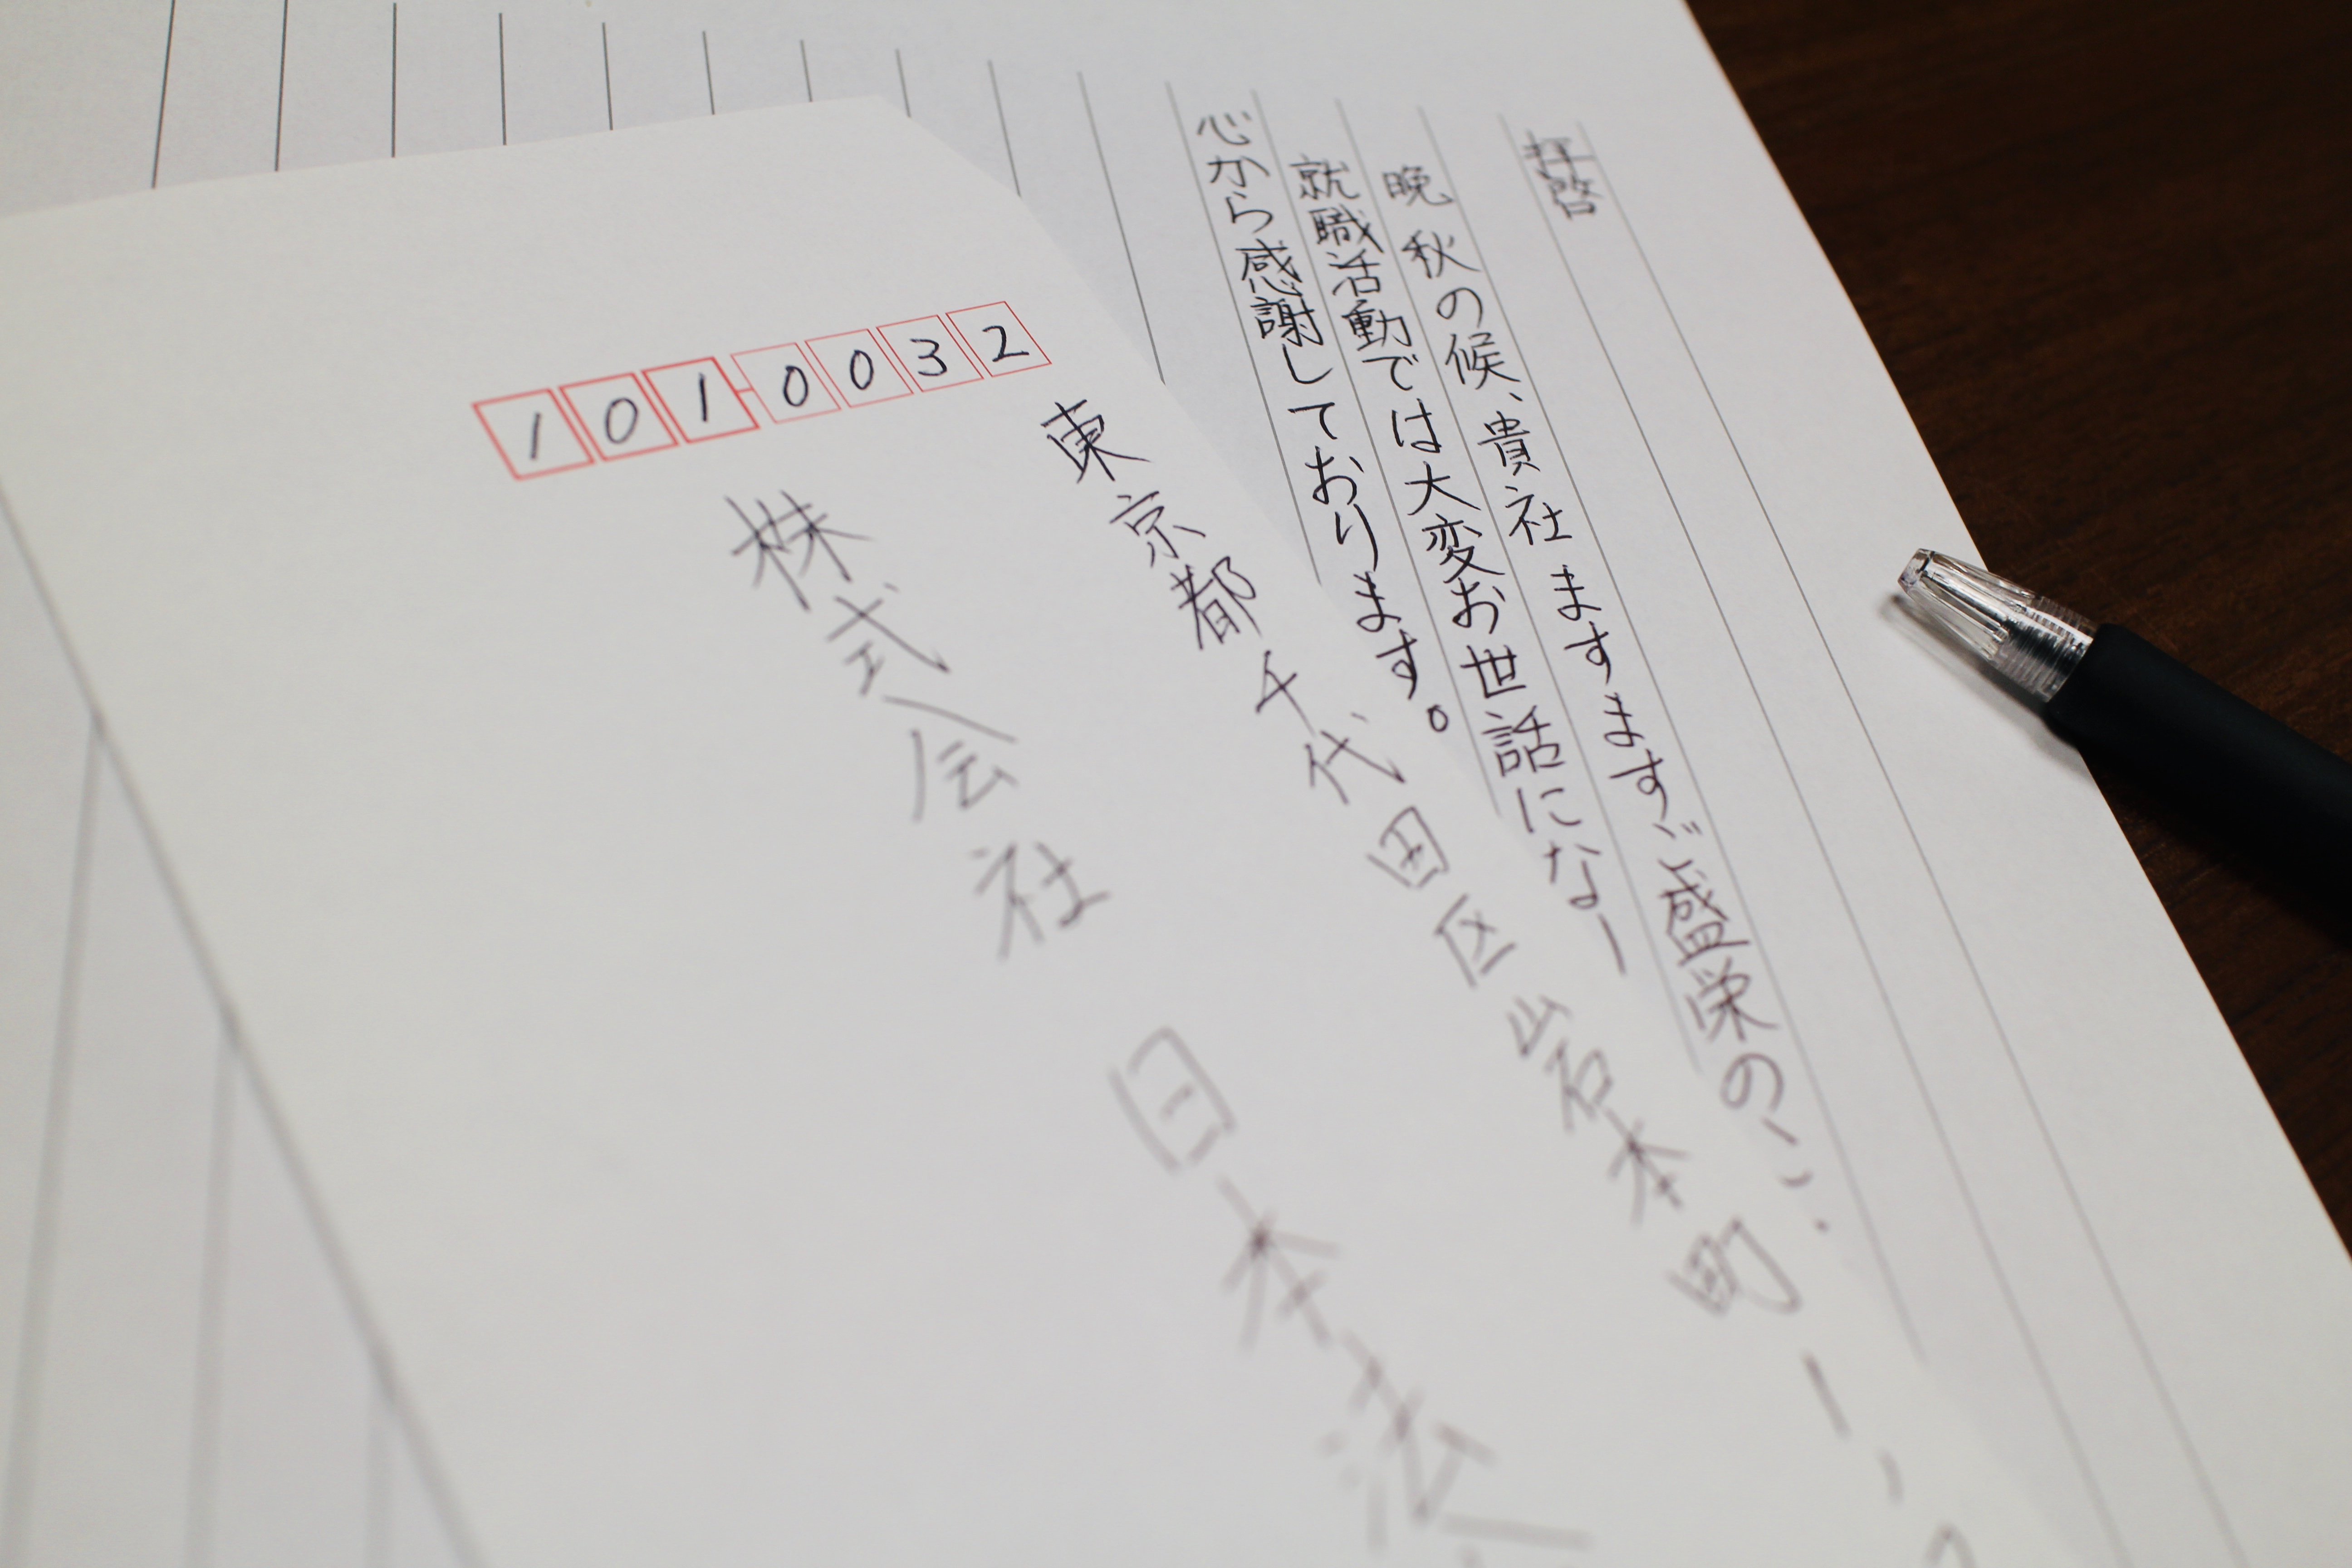 拝啓
晩秋の候、貴社ますますご盛栄の
就職活動では大変お世話にな
心から感謝しております。
101-0032
東京都千代田区岩本町
株式会社 日本法